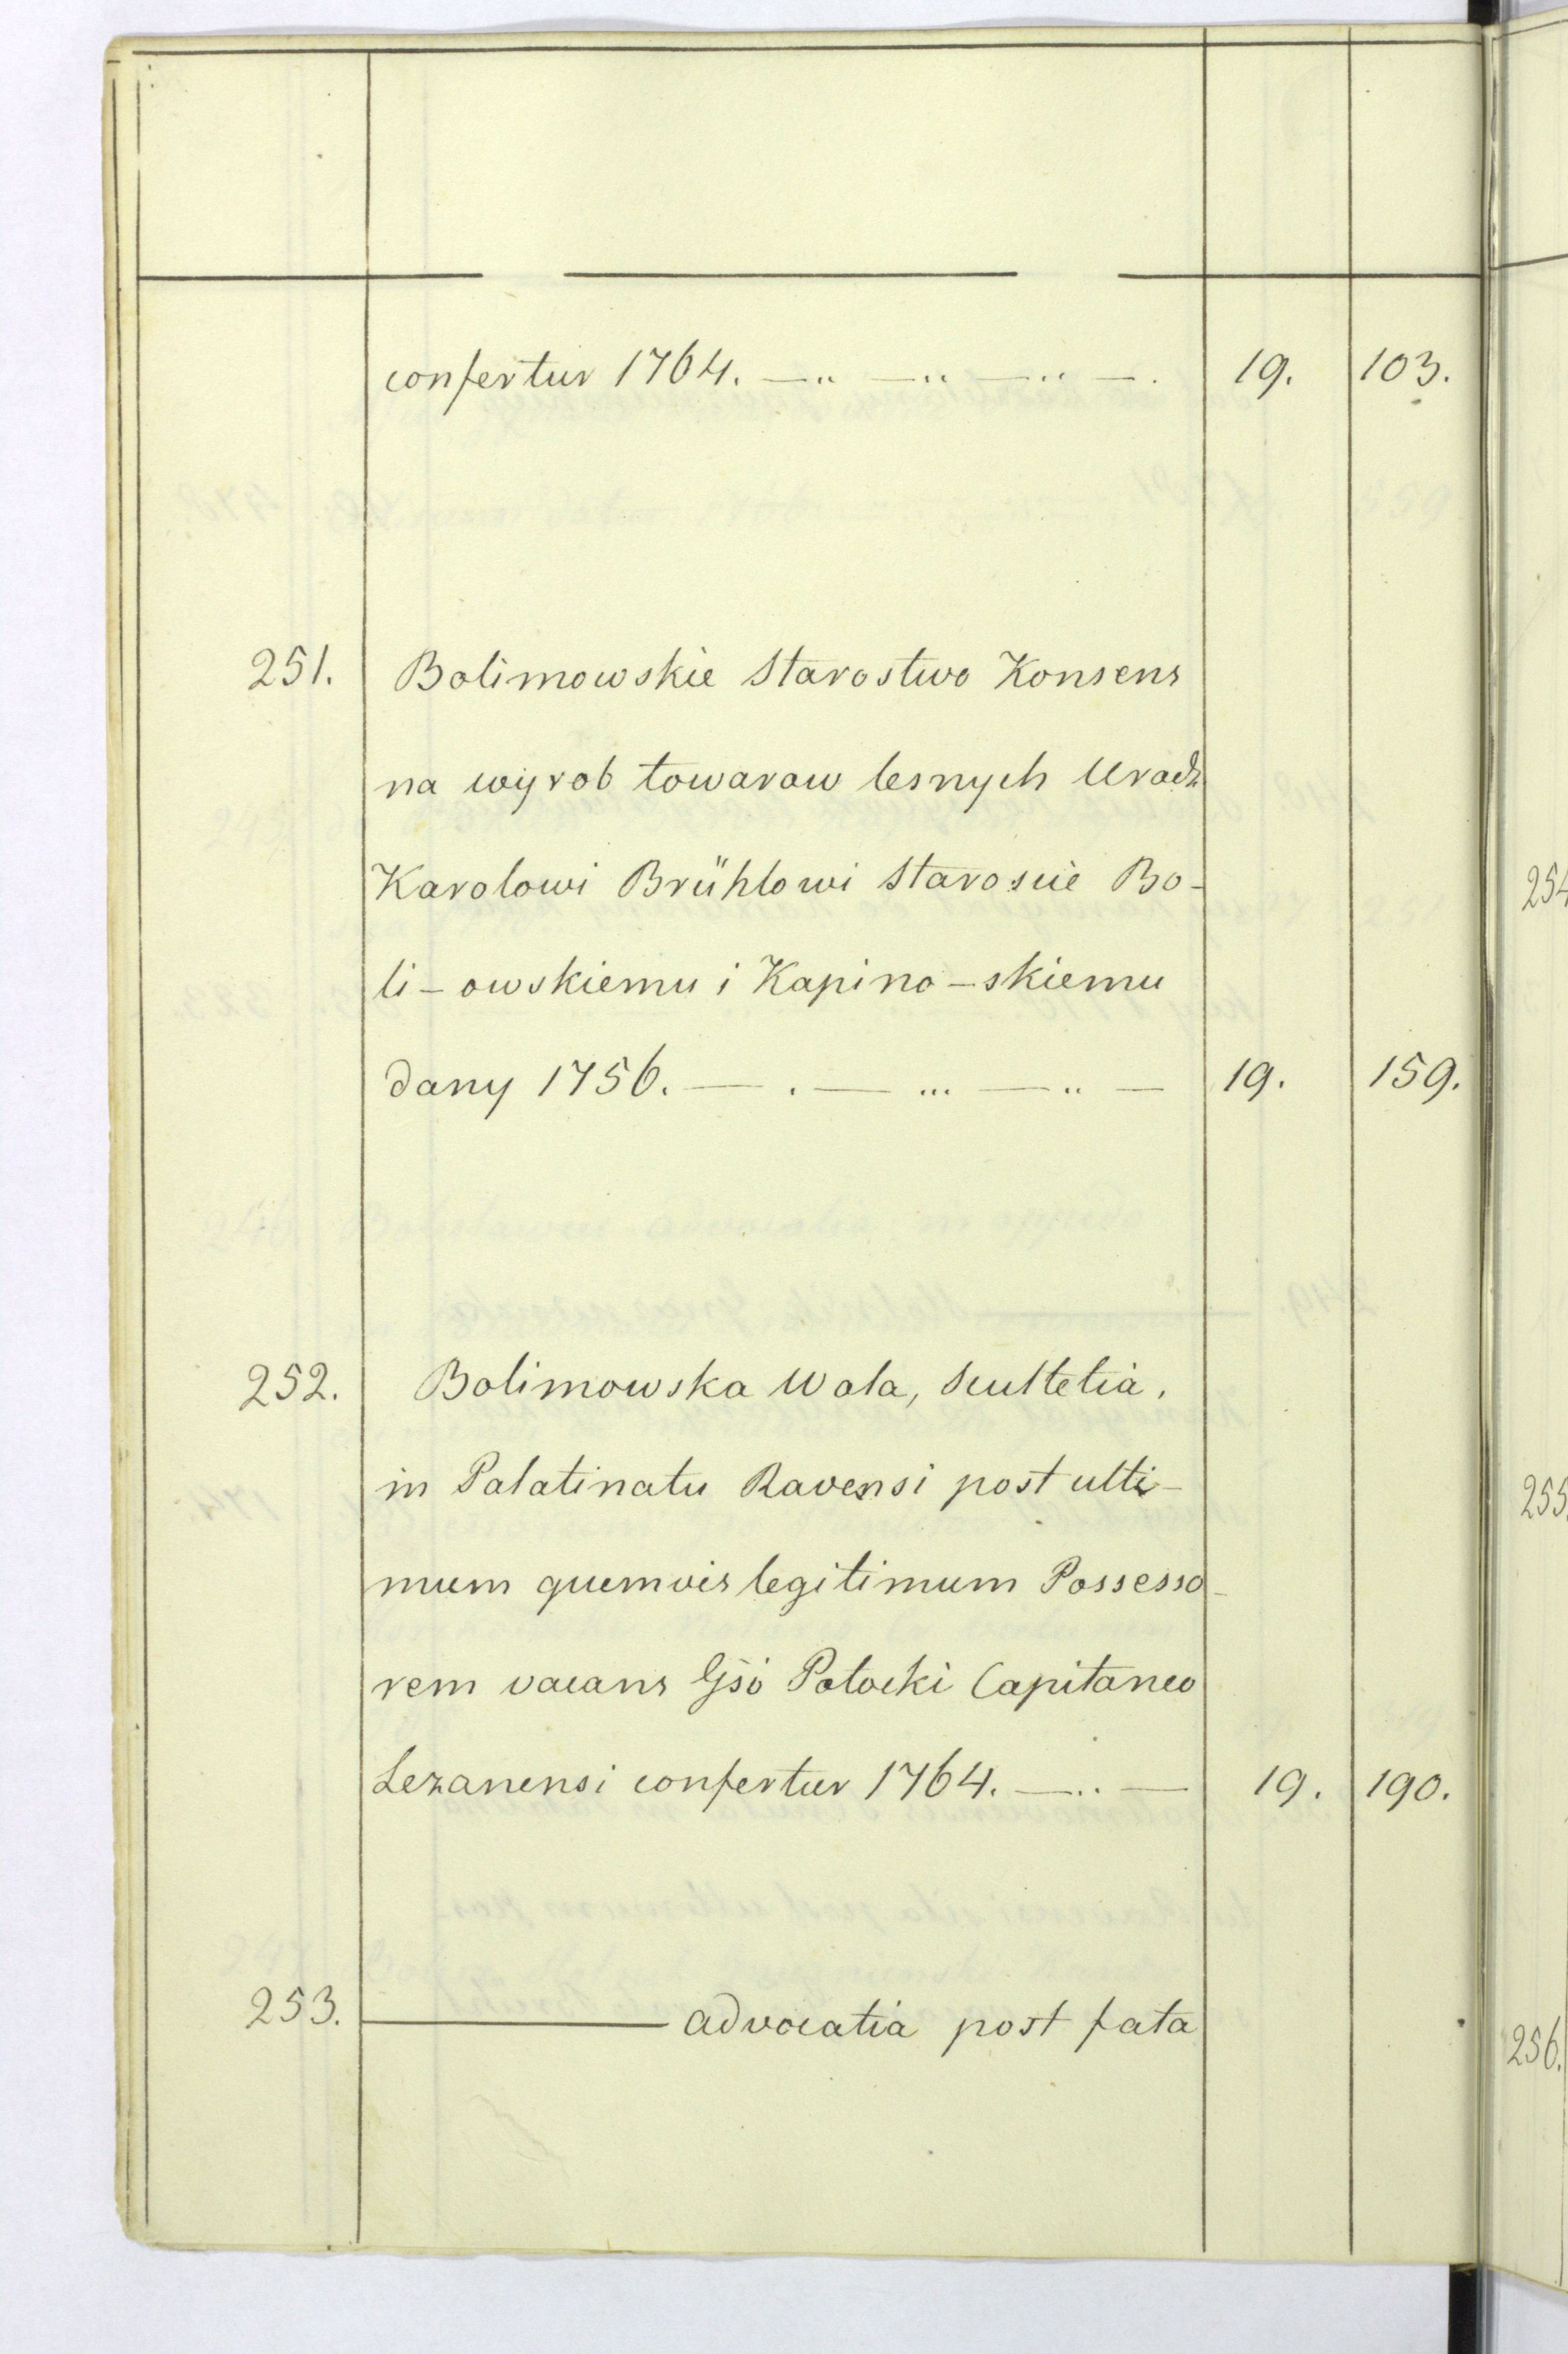 confertur 1764. —.. —.. —.. —. 19. 103.
251. Bolimowskie Starostwo Konsens
na wyrob towarow lesnych Urodz
Karolowi Brühlowi Staroscie Bo-
li-owskiemu i Kapino-skiemu
dany 1756. — . — ... — .. — 19. 159.
252. Bolimowska Wola, Scultetia,
in Palatinatu Ravensi post ulti-
mum quemvis legitimum Possesso-
rem vacans Potocki Capitaneo
Lezanensi confertur 1764. —.. — 19. 190.
253. ——— advocatia post fata
254
255.
256.